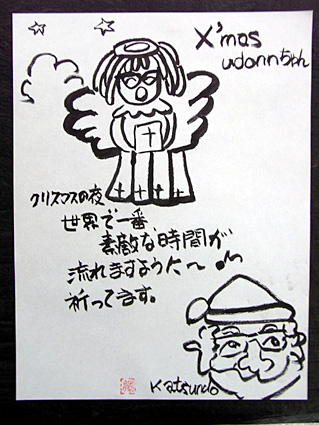 X'mas
udonnちゃん
クリスマスの夜
世界で一番
素敵な時間が
流れますように〜♪
祈ってます。
Katsundo